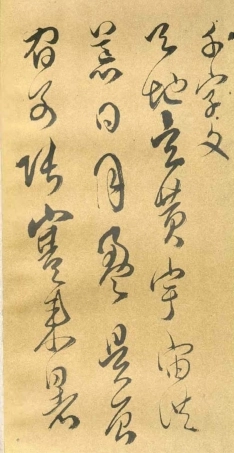 千字文
天地玄黃宇宙洪
荒日月盈昃辰
宿列張寒來暑